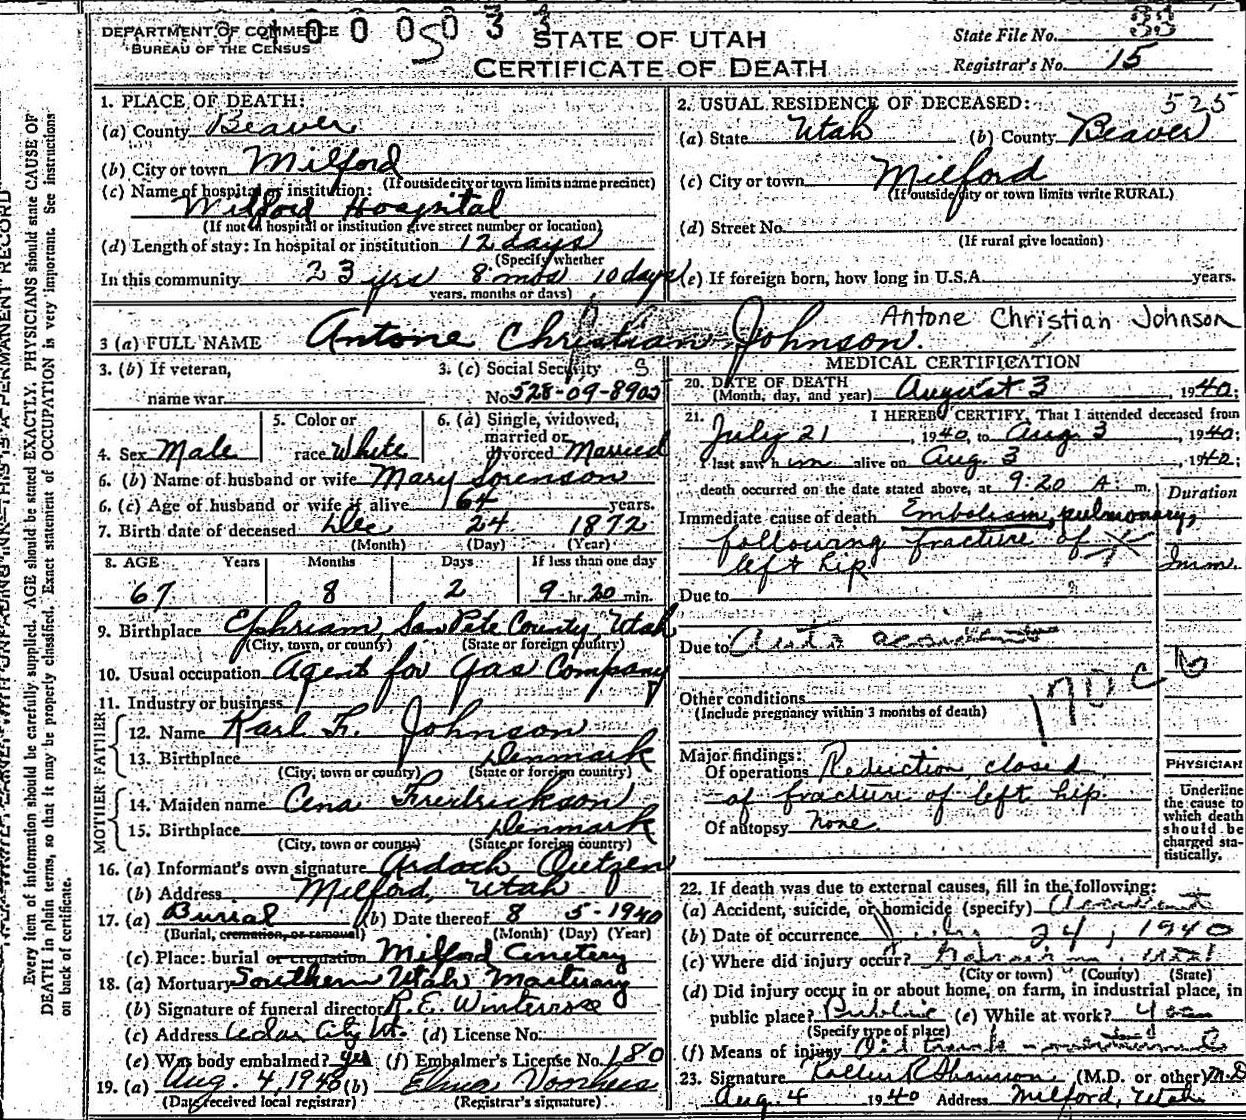 DEPARTMENT OF COMMERCE
BUREAU OF THE CENSUS
STATE OF UTAH
CERTIFICATE OF DEATH
State File No. 33
Registrar's No. 15
1. PLACE OF DEATH:
(a) County Beaver
(b) City or town Milford
(If outside city or town limits name precinct)
(c) Name of hospital or institution:
Milford Hospital
(If not in hospital or institution give street number or location)
(d) Length of stay: In hospital or institution 12 days
(Specify whether
In this community 23 yrs 8 mos 10 days
years, months or days)
2. USUAL RESIDENCE OF DECEASED: 525
(a) State Utah (b) County Beaver
(c) City or town Milford
(If outside city or town limits write RURAL)
(d) Street No.
(If rural give location)
(e) If foreign born, how long in U.S.A. years.
3 (a) FULL NAME Antone Christian Johnson. Antone Christian Johnson
3. (b) If veteran,
name war
3. (c) Social Security S
No. 528-09-8902
4. Sex Male
5. Color or
race White
6. (a) Single, widowed,
married or
divorced Married
6. (b) Name of husband or wife Mary Sorenson
6. (c) Age of husband or wife if alive 64 years.
7. Birth date of deceased Dec 24 1872
(Month) (Day) (Year)
8. AGE Years Months Days If less than one day
67 8 2 9 hr. 20 min.
9. Birthplace Ephriam, San Pete County, Utah
(City, town, or county) (State or foreign country)
10. Usual occupation Agent for Gas Company
11. Industry or business
FATHER
12. Name Karl F. Johnson
13. Birthplace Denmark
(City, town or county) (State or foreign country)
MOTHER
14. Maiden name Cena Fredrickson
15. Birthplace Denmark
(City, town or county) (State or foreign country)
16. (a) Informant's own signature Ardach
(b) Address Milford, Utah
17. (a) Burial (b) Date thereof 8 5-1940
(Burial, cremation, or removal) (Month) (Day) (Year)
(c) Place: burial or cremation Milford Cemetery
18. (a) Mortuary Southern Utah Mortuary
(b) Signature of funeral director R. E. Winterrose
(c) Address Cedar City Ut. (d) License No.
(e) Was body embalmed? yes (f) Embalmer's License No. 180
19. (a) Aug. 4, 1940 (b) Elma Voorhees
(Date received local registrar) (Registrar's signature)
MEDICAL CERTIFICATION
20. DATE OF DEATH
(Month, day, and year) August 3, 1940;
21. I HEREBY CERTIFY, That I attended deceased from
July 21, 1940, to Aug. 3, 1940;
I last saw him alive on Aug. 3, 1940;
death occurred on the date stated above, at 9:20 A. m.
Duration
Immediate cause of death Embolism, pulmonary,
following fracture of
left hip
Imm.
Due to
Due to Auto accident
Other conditions
(Include pregnancy within 3 months of death)
Major findings:
Of operations Reduction, closed
of fracture of left hip.
Of autopsy none.
PHYSICIAN
Underline
the cause to
which death
should be
charged sta-
tistically.
22. If death was due to external causes, fill in the following:
(a) Accident, suicide, or homicide (specify) Accident
(b) Date of occurrence 24, 1940
(c) Where did injury occur? Utah
(City or town) (County) (State)
(d) Did injury occur in or about home, on farm, in industrial place, in
public place? Public (e) While at work? yes
(Specify type of place)
(f) Means of injury Oil truck
23. Signature (M.D. or other) M.D.
Aug. 4 1940 Address Milford, Utah
Every item of information should be carefully supplied. AGE should be stated EXACTLY. PHYSICIANS should state CAUSE OF
DEATH in plain terms, so that it may be properly classified. Exact statement of OCCUPATION is very important. See instructions
on back of certificate.